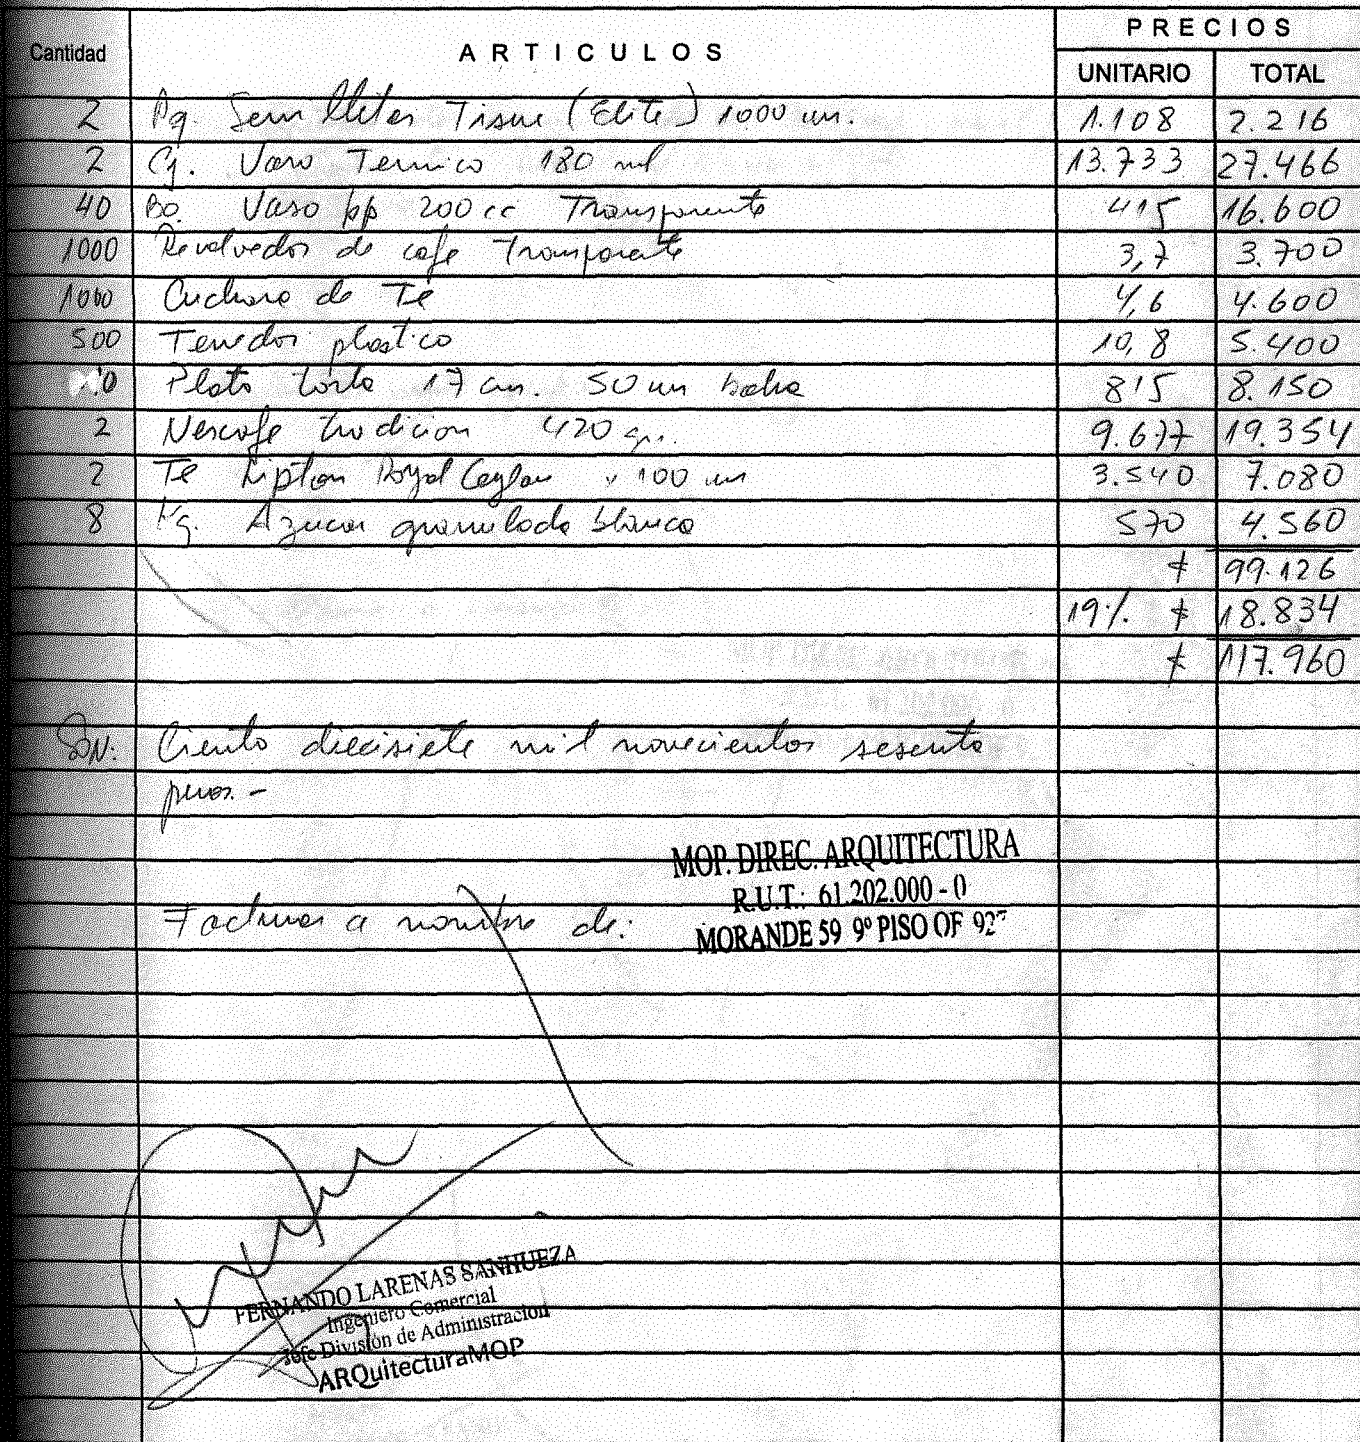 PRECIOS
Cantidad ARTICULOS UNITARIO TOTAL
2 Pq. Servilletas Tisue (Elite) 1000 un. 1.108 2.216
2 Cj. Vaso Termico 180 ml 13.733 27.466
40 Bo. Vaso pp 200 cc Transparente 415 16.600
1000 Revolvedor de cafe Transparente 3,7 3.700
1000 Cuchara de Te 4,6 4.600
500 Tenedor plastico 10,8 5.400
Plato torta 17 cm. 50 un bolsa 815 8.150
2 Nescafe tradicion 420 gr. 9.677 19.354
2 Te Lipton Royal Ceylan 100 un 3.540 7.080
8 Kg. Azucar granulada blanca 570 4.560
$ 99.126
19% $ 18.834
$ 117.960
SON: Ciento diecisiete mil novecientos sesenta
pesos.-
MOP. DIREC. ARQUITECTURA
R.U.T.: 61.202.000 - 0
Facturar a nombre de:
MORANDE 59 9º PISO OF
FERNANDO LARENAS SANHUEZA
Ingeniero Comercial
Jefe División de Administracion
ARQuitecturaMOP